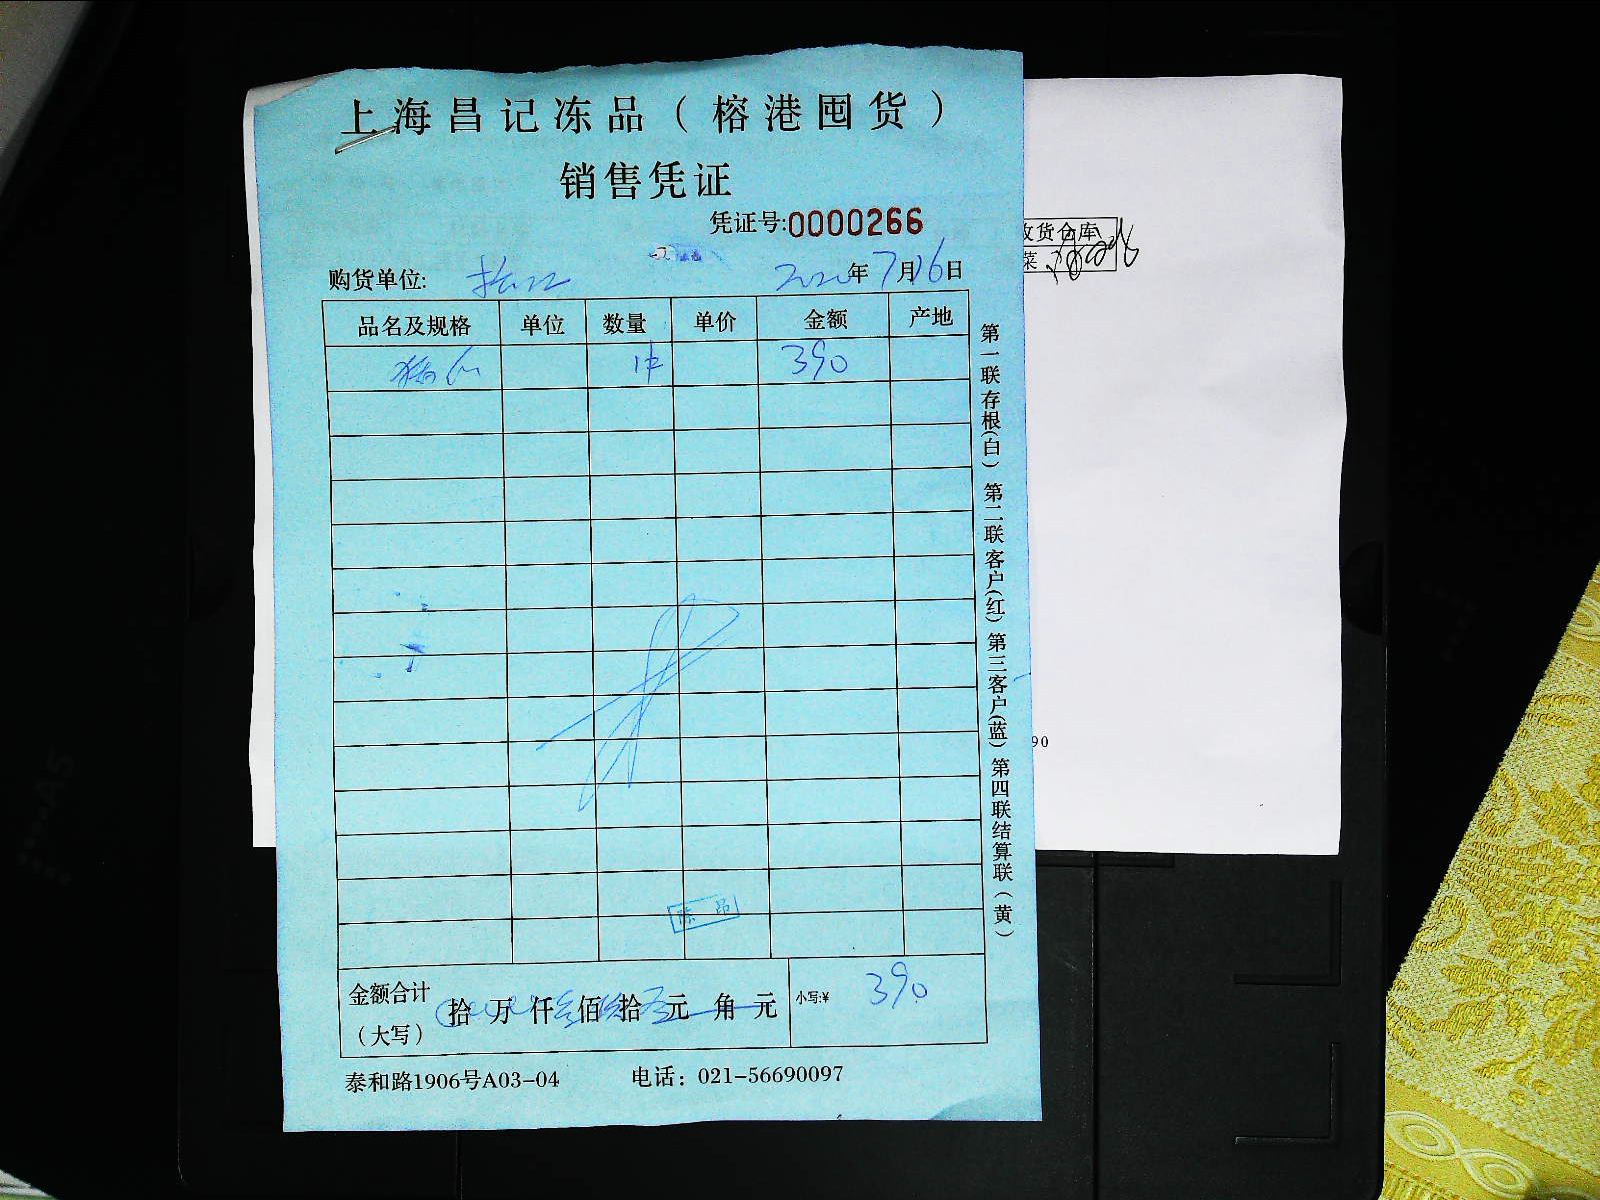 上海昌记冻品（榕港囤货）
销售凭证
凭证号:0000266
购货单位: 2020年7月16日
品名及规格 单位 数量 单价 金额 产地
1件 390
金额合计（大写） 拾 万 仟 佰 拾 元 角 元 小写:¥ 390
泰和路1906号A03-04 电话：021-56690097
第一联存根(白) 第二联客户(红) 第三客户(蓝) 第四联结算联(黄)
收货仓库
菜
90
A5